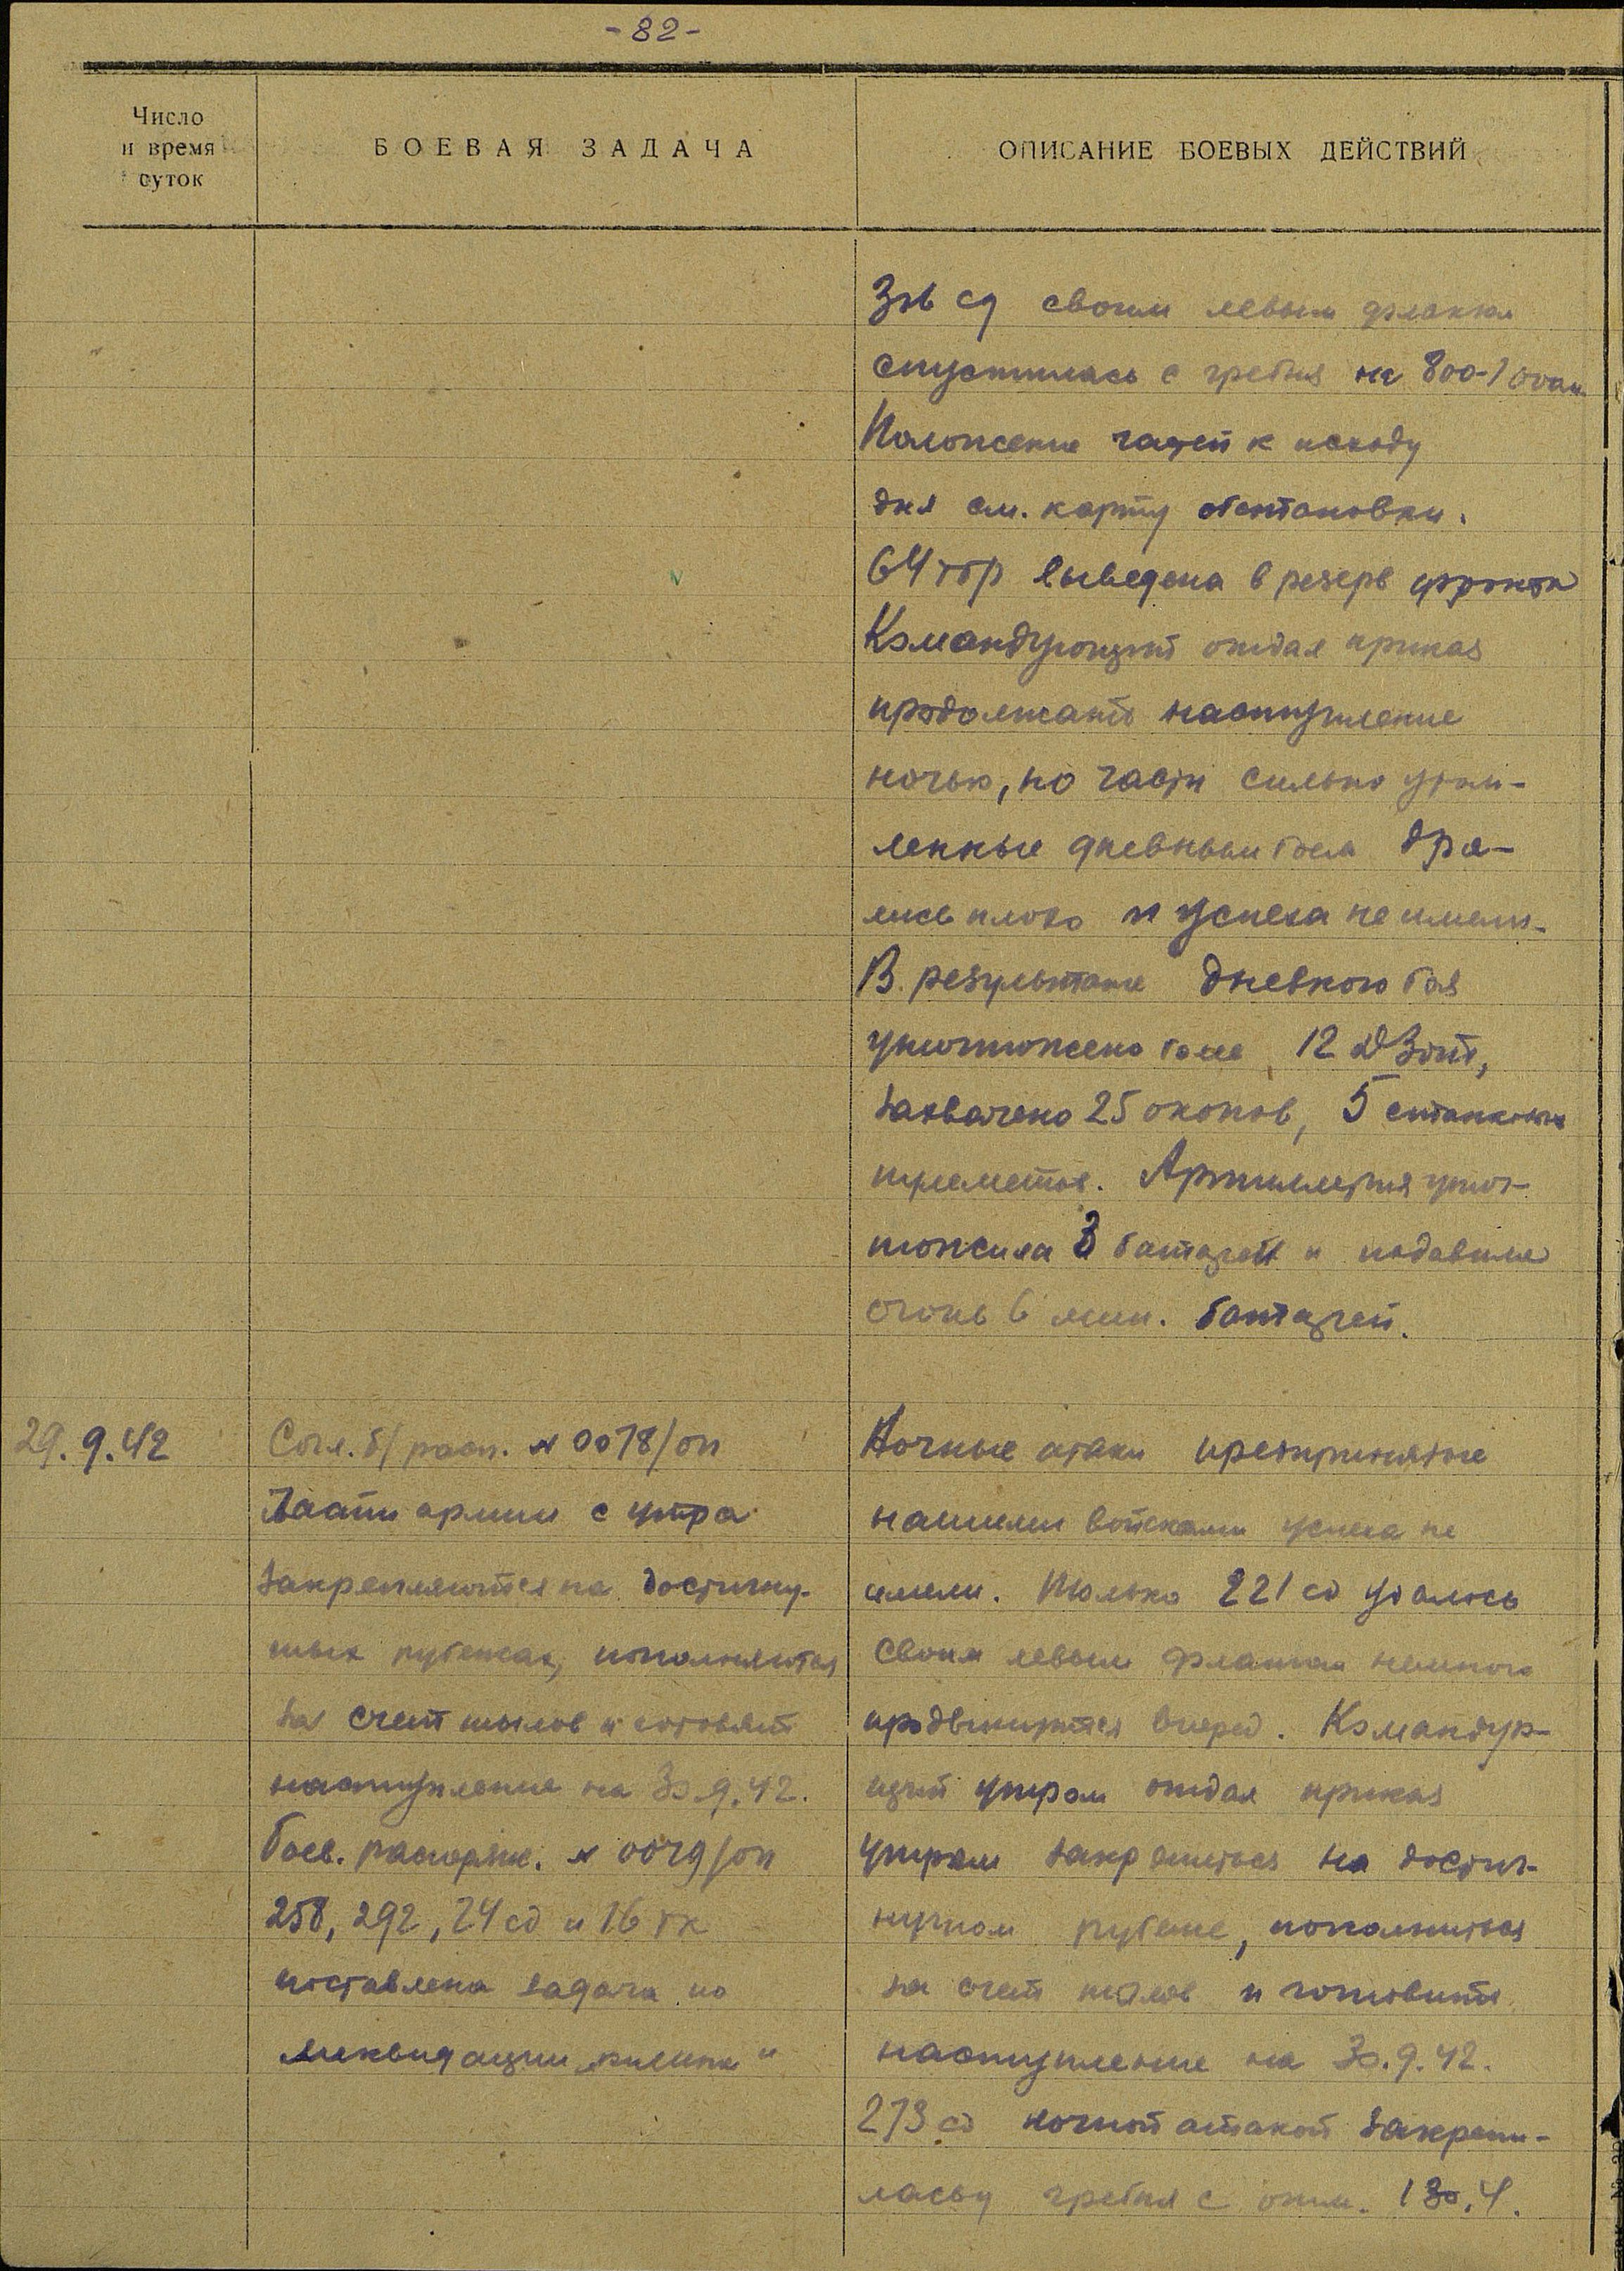 -82-
Число
и время
суток
БОЕВАЯ ЗАДАЧА
ОПИСАНИЕ БОЕВЫХ ДЕЙСТВИЙ
сд своим левым флангом
спустилась с гребня на 800-1000м.
Положение частей к исходу
дня см. карту обстановки.
64 тбр выведена в резерв фронта
Командующий отдал приказ
продолжать наступление
ночью, но части сильно утом-
ленные дневным боем дра-
лись плохо и успеха не имели.
В результате дневного боя
уничтожено более 12 ДЗОТ,
захвачено 25 окопов, 5 станковых
пулеметов. Артиллерия унич-
тожила 3 батареи и подавила
огонь 6 мин. батарей.
29.9.42
Согл. б/расп. № 0078/оп
Части армии с утра
закрепляются на достигну-
тых рубежах, пополняются
за счет тылов и готовят
наступление на 30.9.42.
Боев. распоряж. № 0079/оп
258, 292, 24 сд и 16 тк
поставлена задача по
ликвидации "
Ночные атаки предпринятые
нашими войсками успеха не
имели. Только 221 сд удалось
своим левым флангом немного
продвинуться вперед. Командую-
щий утром отдал приказ
утром закрепиться на достиг-
нутом рубеже, пополниться
за счет тылов и готовить
наступление на 30.9.42.
273 сд ночной атакой закрепи-
лась у гребня с отм. 130,4.